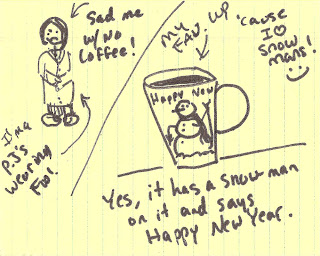 Sad me
w/No
Coffee!
I'm a
PJ's
wearing
Foo!
My
Fav. cup
'cause
I ♡
snow
mans!
Happy New
Yes, it has a snowman
on it and says
Happy New Year.